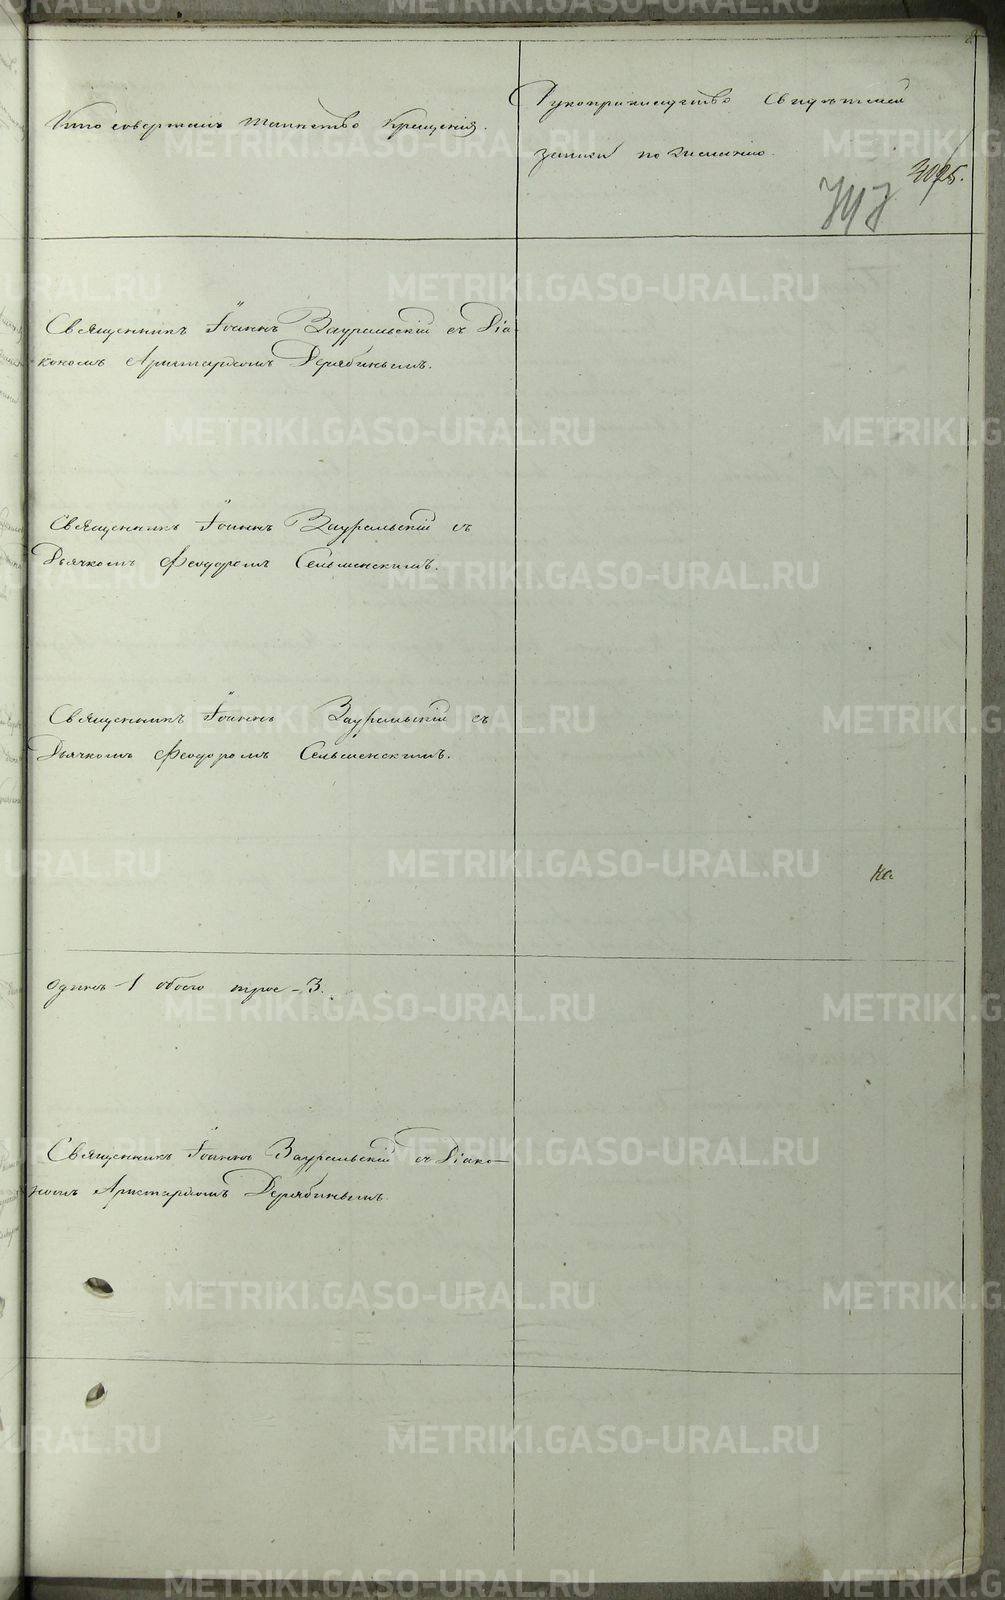 Кто совершалъ таинство крещенія.
Рукоприкладство свидѣтелей
записи по желанію.
Священникъ Іоаннъ Зауральскій съ Діа-
кономъ Аристархомъ Дерябинымъ.
Священникъ Іоаннъ Зауральскій съ
Дьячкомъ Ѳеодоромъ Сельменскимъ.
Священникъ Іоаннъ Зауральскій съ
Дьячкомъ Ѳеодоромъ Сельменскимъ.
ка
одинъ - 1 обоего трое - 3.
Священникъ Іоаннъ Зауральскій съ Діако-
номъ Аристархомъ Дерябинымъ.
METRIKI.GASO-URAL.RU